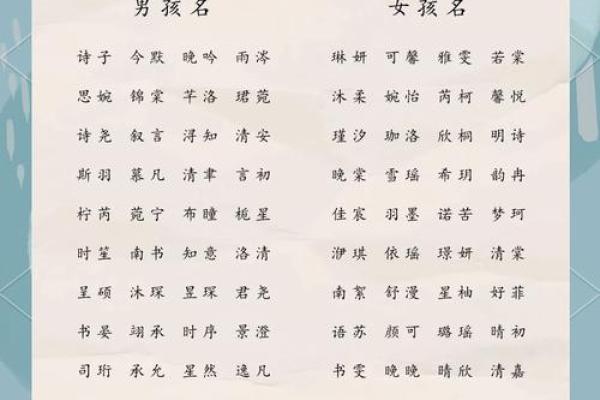 男孩名 女孩名
诗子 今默 晚吟 雨涔 琳妍 可馨 雅雯 若棠
思婉 锦棠 芊洛 珺菀 沐柔 婉怡 芮柯 馨悦
诗尧 叙言 浔知 清安 瑾汐 珈洛 欣桐 明诗
斯羽 慕凡 清聿 言初 晚棠 雪瑶 希玥 韵冉
柠芮 菀宁 布瞳 栀星 佳宸 羽墨 诺苦 梦珂
时笙 南书 知意 洛清 洢琪 依瑶 璟妍 清棠
呈硕 沐琛 昱琛 君尧 南絮 舒漫 星柚 好菲
书晏 翊承 时序 景澄 语苏 颜可 璐瑶 晴初
司珩 承允 星然 逸凡 书雯 晚晚 晴欣 清嘉